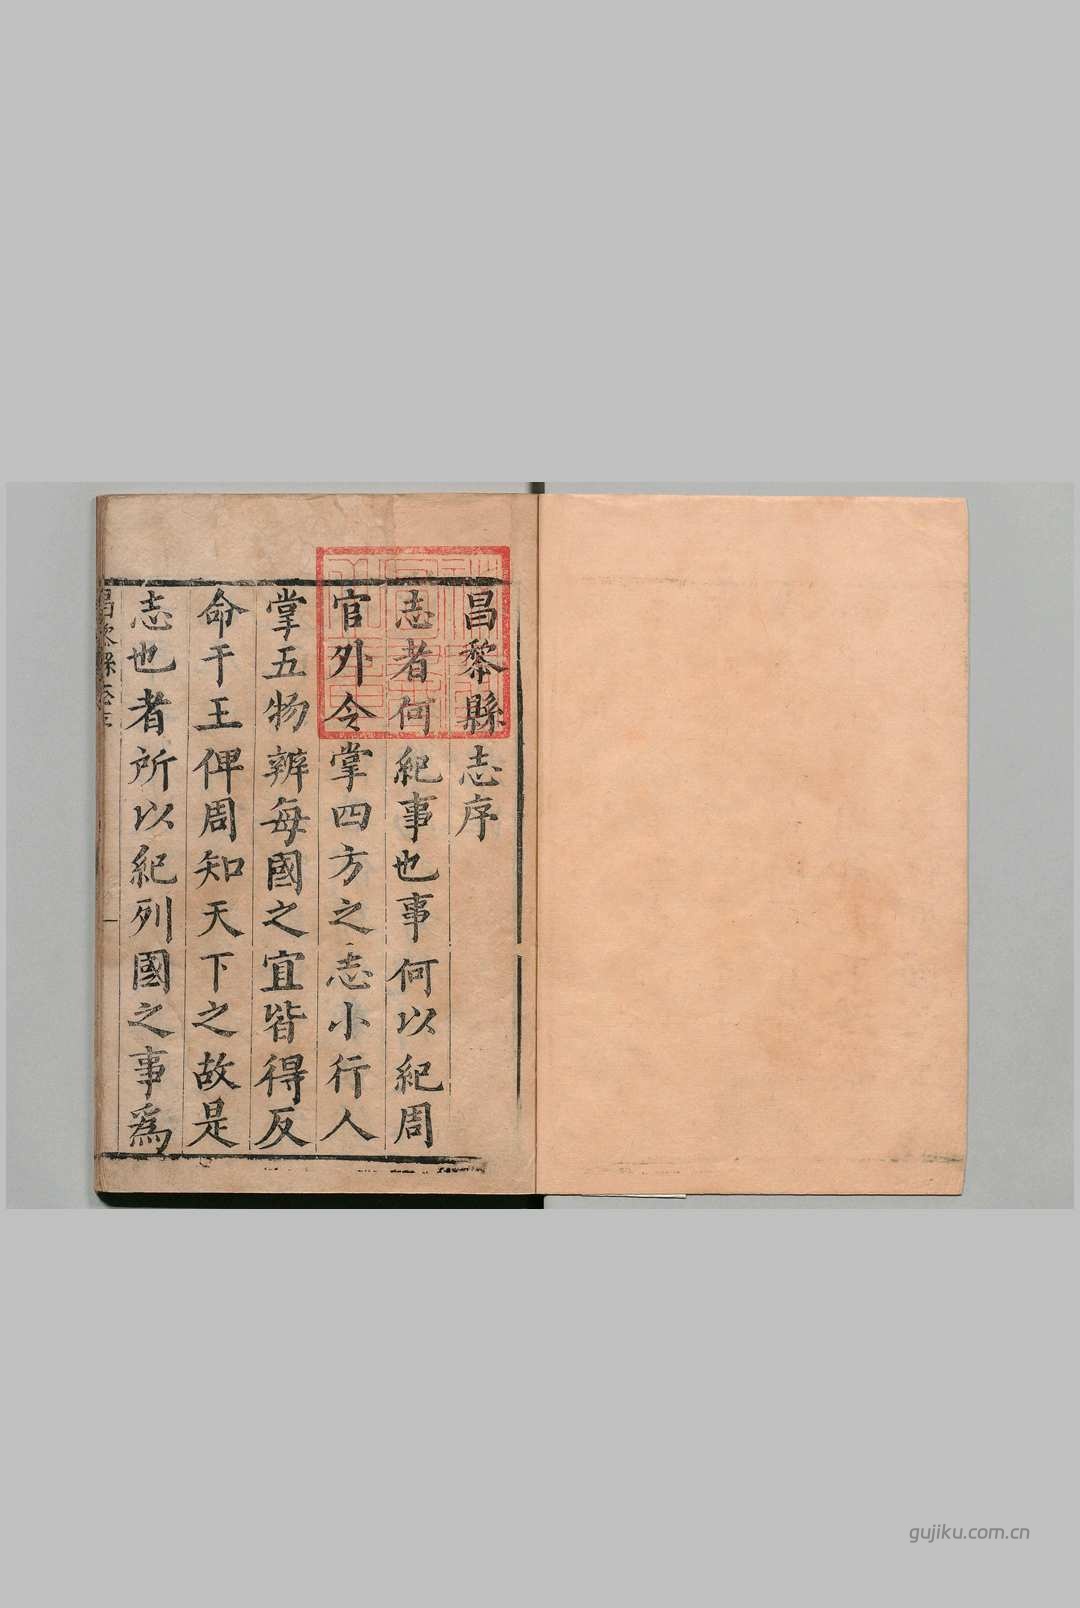 昌黎縣志序
志者何紀事也事何以紀周
官外令掌四方之志小行人
掌五物辨每國之宜皆得反
命于王俾周知天下之故是
志也者所以紀列國之事爲
gujiku.com.cn